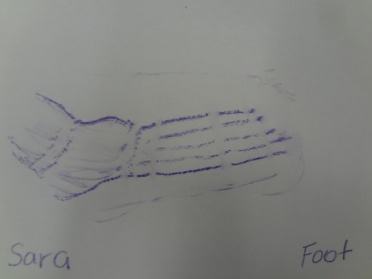 Sara
Foot